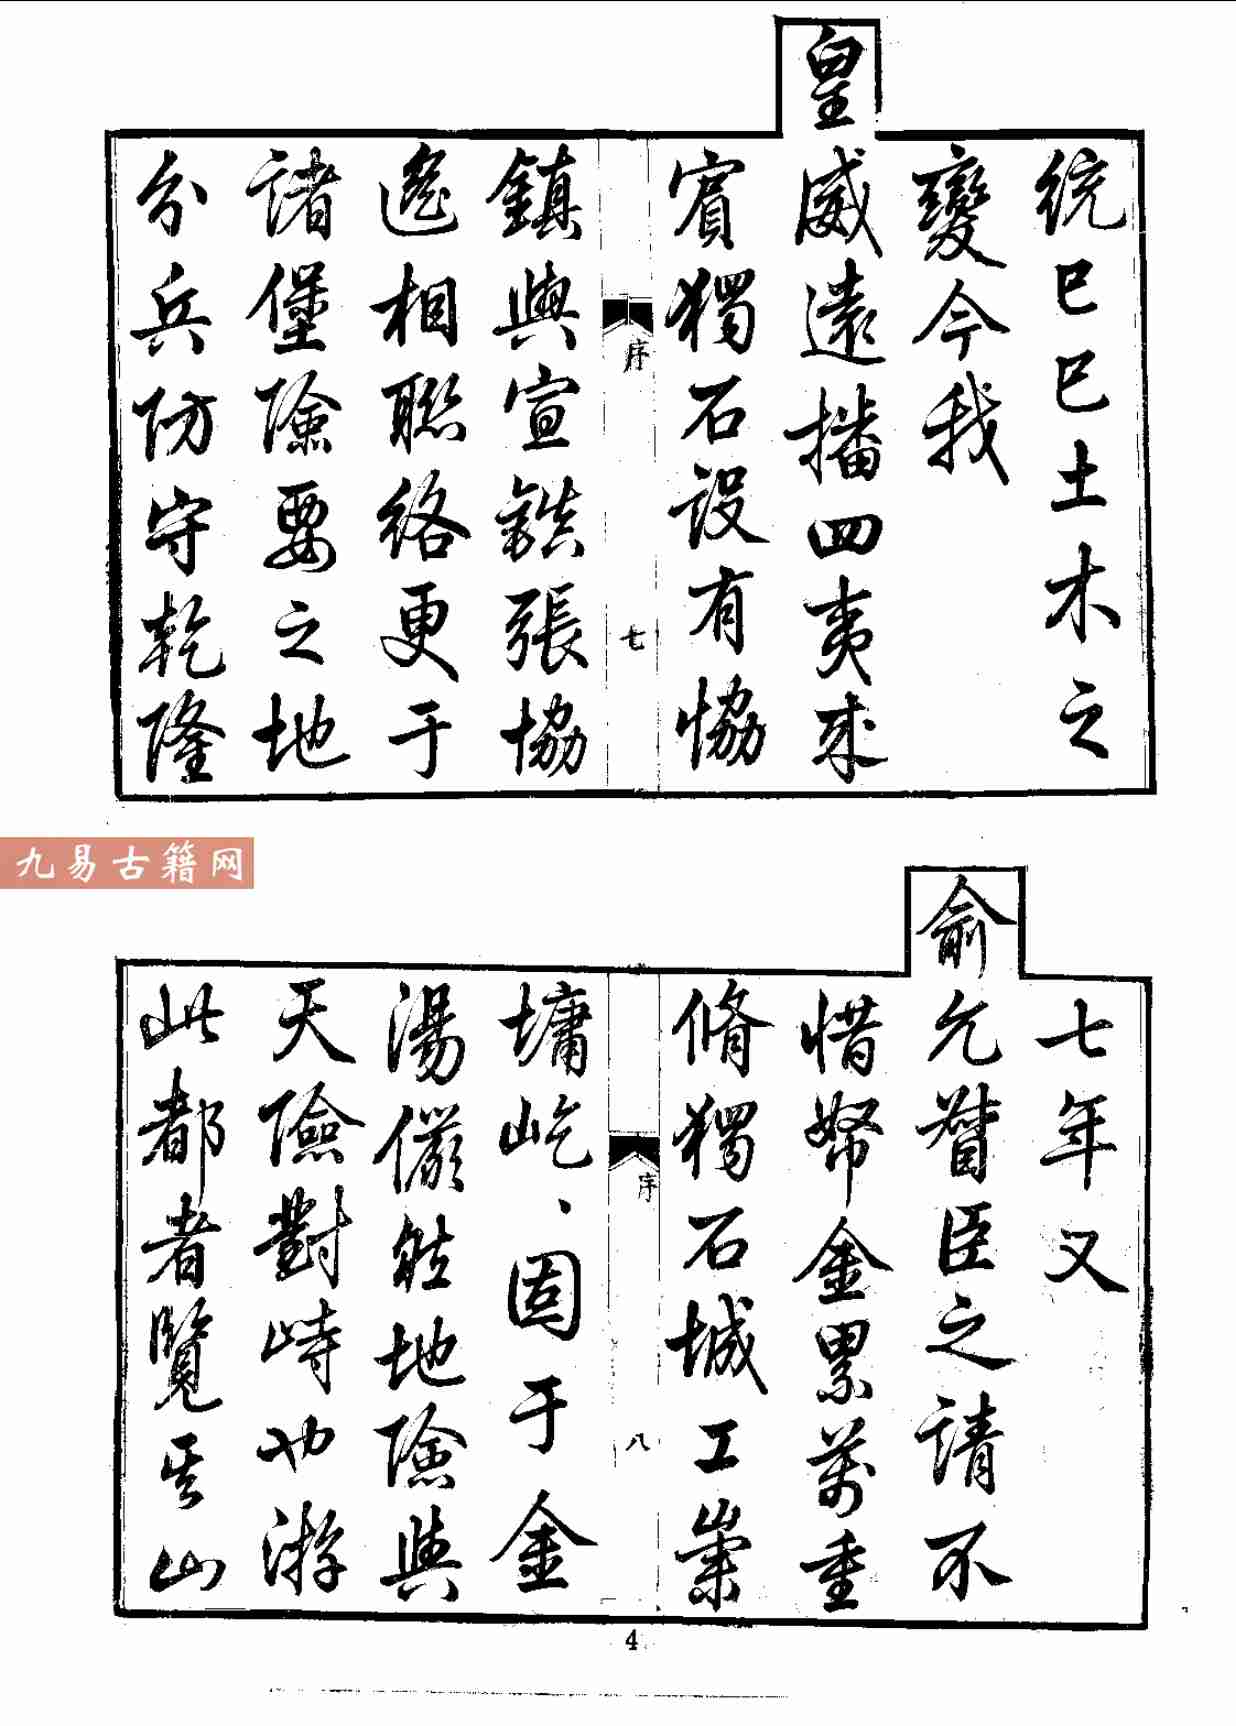 統已巳土木之
變今我
皇威遠播四夷來
賓獨石設有協
序
七
鎮與宣鎮張協
遙相聯絡更于
諸堡險要之地
分兵防守乾隆
九易古籍网
七年又
俞允督臣之請不
惜帑金累萬重
脩獨石城工崇
序
八
墉屹、固于金
湯儼然地險與
天險對峙也游
此都者覽其山
4